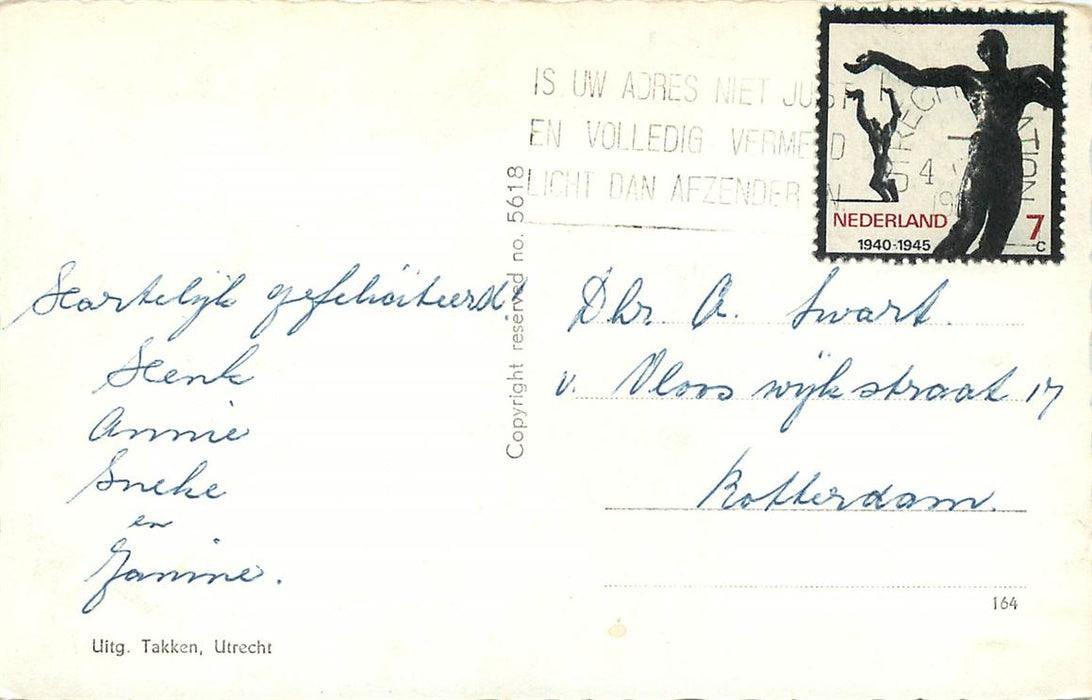 IS UW ADRES NIET JUIST
EN VOLLEDIG VERMELD
LICHT DAN AFZENDER IN.
UTRECHT STATION
4
NEDERLAND 7
1940-1945 C
Hartelijk gefeliciteerd!
Henk
Annie
Ineke
en
Janine.
Uitg. Takken, Utrecht
Copyright reserved no. 5618
Dhr. A. Swart.
v. Vloos wijkstraat 17
Rotterdam.
164